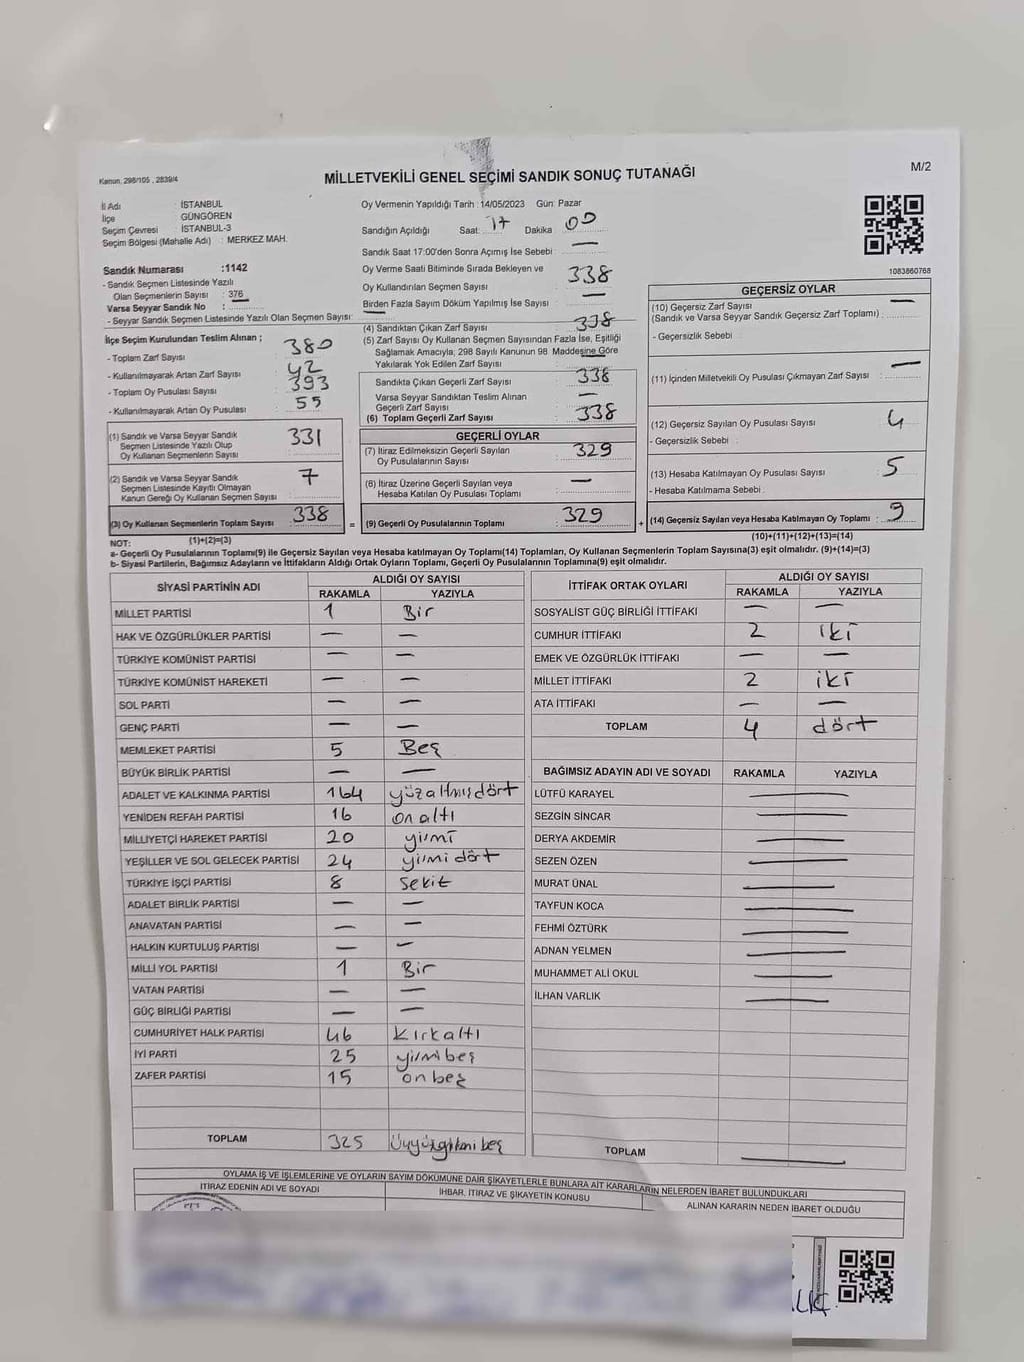 Kanun, 298/105 , 2839/4
M/2
MİLLETVEKİLİ GENEL SEÇİMİ SANDIK SONUÇ TUTANAĞI
İl Adı : İSTANBUL
İlçe : GÜNGÖREN
Seçim Çevresi : İSTANBUL-3
Seçim Bölgesi (Mahalle Adı) : MERKEZ MAH.
Sandık Numarası :1142
- Sandık Seçmen Listesinde Yazılı
Olan Seçmenlerin Sayısı : 376
Varsa Seyyar Sandık No :
- Seyyar Sandık Seçmen Listesinde Yazılı Olan Seçmen Sayısı: —
Oy Vermenin Yapıldığı Tarih :14/05/2023 Gün: Pazar
Sandığın Açıldığı Saat: 17 Dakika : 00
Sandık Saat 17:00'den Sonra Açımış İse Sebebi : —
Oy Verme Saati Bitiminde Sırada Bekleyen ve
Oy Kullandırılan Seçmen Sayısı : 338
Birden Fazla Sayım Döküm Yapılmış İse Sayısı : —
1083860768
İlçe Seçim Kurulundan Teslim Alınan ;
- Toplam Zarf Sayısı : 380
- Kullanılmayarak Artan Zarf Sayısı : 42
- Toplam Oy Pusulası Sayısı : 393
- Kullanılmayarak Artan Oy Pusulası : 55
(1) Sandık ve Varsa Seyyar Sandık
Seçmen Listesinde Yazılı Olup
Oy Kullanan Seçmenlerin Sayısı : 331
(2) Sandık ve Varsa Seyyar Sandık
Seçmen Listesinde Kayıtlı Olmayan
Kanun Gereği Oy Kullanan Seçmen Sayısı : 7
(3) Oy Kullanan Seçmenlerin Toplam Sayısı : 338
(1)+(2)=(3)
(4) Sandıktan Çıkan Zarf Sayısı : 338
(5) Zarf Sayısı Oy Kullanan Seçmen Sayısından Fazla İse, Eşitliği
Sağlamak Amacıyla, 298 Sayılı Kanunun 98 Maddesine Göre
Yakılarak Yok Edilen Zarf Sayısı : —
Sandıkta Çıkan Geçerli Zarf Sayısı : 338
Varsa Seyyar Sandıktan Teslim Alınan
Geçerli Zarf Sayısı : —
(6) Toplam Geçerli Zarf Sayısı : 338
GEÇERLİ OYLAR
(7) İtiraz Edilmeksizin Geçerli Sayılan
Oy Pusulalarının Sayısı : 329
(8) İtiraz Üzerine Geçerli Sayılan veya
Hesaba Katılan Oy Pusulası Toplamı : —
= (9) Geçerli Oy Pusulalarının Toplamı : 329
GEÇERSİZ OYLAR
(10) Geçersiz Zarf Sayısı
(Sandık ve Varsa Seyyar Sandık Geçersiz Zarf Toplamı) : —
- Geçersizlik Sebebi :
(11) İçinden Milletvekili Oy Pusulası Çıkmayan Zarf Sayısı : —
(12) Geçersiz Sayılan Oy Pusulası Sayısı : 4
- Geçersizlik Sebebi :
(13) Hesaba Katılmayan Oy Pusulası Sayısı : 5
- Hesaba Katılmama Sebebi :
+ (14) Geçersiz Sayılan veya Hesaba Katılmayan Oy Toplamı : 9
(10)+(11)+(12)+(13)=(14)
NOT:
a- Geçerli Oy Pusulasının Toplamı(9) ile Geçersiz Sayılan veya Hesaba katılmayan Oy Toplamı(14) Toplamları, Oy Kullanan Seçmenlerin Toplam Sayısına(3) eşit olmalıdır. (9)+(14)=(3)
b- Siyasi Partilerin, Bağımsız Adayların ve İttifakların Aldığı Ortak Oyların Toplamı, Geçerli Oy Pusulalarının Toplamına(9) eşit olmalıdır.
SİYASİ PARTİNİN ADI ALDIĞI OY SAYISI
RAKAMLA YAZIYLA
MİLLET PARTİSİ 1 Bir
HAK VE ÖZGÜRLÜKLER PARTİSİ — —
TÜRKİYE KOMÜNİST PARTİSİ — —
TÜRKİYE KOMÜNİST HAREKETİ — —
SOL PARTİ — —
GENÇ PARTİ — —
MEMLEKET PARTİSİ 5 Beş
BÜYÜK BİRLİK PARTİSİ — —
ADALET VE KALKINMA PARTİSİ 164 yüzaltmışdört
YENİDEN REFAH PARTİSİ 16 on altı
MİLLİYETÇİ HAREKET PARTİSİ 20 yirmi
YEŞİLLER VE SOL GELECEK PARTİSİ 24 yirmi dört
TÜRKİYE İŞÇİ PARTİSİ 8 sekiz
ADALET BİRLİK PARTİSİ — —
ANAVATAN PARTİSİ — —
HALKIN KURTULUŞ PARTİSİ — —
MİLLİ YOL PARTİSİ 1 Bir
VATAN PARTİSİ — —
GÜÇ BİRLİĞİ PARTİSİ — —
CUMHURİYET HALK PARTİSİ 46 kırkaltı
İYİ PARTİ 25 yirmi beş
ZAFER PARTİSİ 15 on beş
TOPLAM 325 üçyüzyirmi beş
İTTİFAK ORTAK OYLARI ALDIĞI OY SAYISI
RAKAMLA YAZIYLA
SOSYALİST GÜÇ BİRLİĞİ İTTİFAKI — —
CUMHUR İTTİFAKI 2 iki
EMEK VE ÖZGÜRLÜK İTTİFAKI — —
MİLLET İTTİFAKI 2 iki
ATA İTTİFAKI — —
TOPLAM 4 dört
BAĞIMSIZ ADAYIN ADI VE SOYADI RAKAMLA YAZIYLA
LÜTFÜ KARAYEL —
SEZGİN SİNCAR —
DERYA AKDEMİR —
SEZEN ÖZEN —
MURAT ÜNAL —
TAYFUN KOCA —
FEHMİ ÖZTÜRK —
ADNAN YELMEN —
MUHAMMET ALİ OKUL —
İLHAN VARLIK —
TOPLAM —
OYLAMA İŞ VE İŞLEMLERİNE VE OYLARIN SAYIM DÖKÜMÜNE DAİR ŞİKAYETLERLE BUNLARA AİT KARARLARIN NELERDEN İBARET BULUNDUKLARI
İTİRAZ EDENİN ADI VE SOYADI
İHBAR, İTİRAZ VE ŞİKAYETİN KONUSU
ALINAN KARARIN NEDEN İBARET OLDUĞU